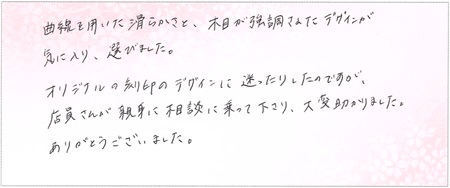 曲線を用いた滑らかさと、木目が強調されたデザインが
気に入り、選びました。
オリジナルの刻印のデザインに迷ったりしたのですが、
店員さんが親身に相談に乗って下さり、大変助かりました。
ありがとうございました。